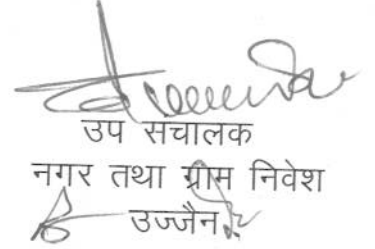 उप सचालक
नगर तथा ग्राम निवेश
उज्जैन